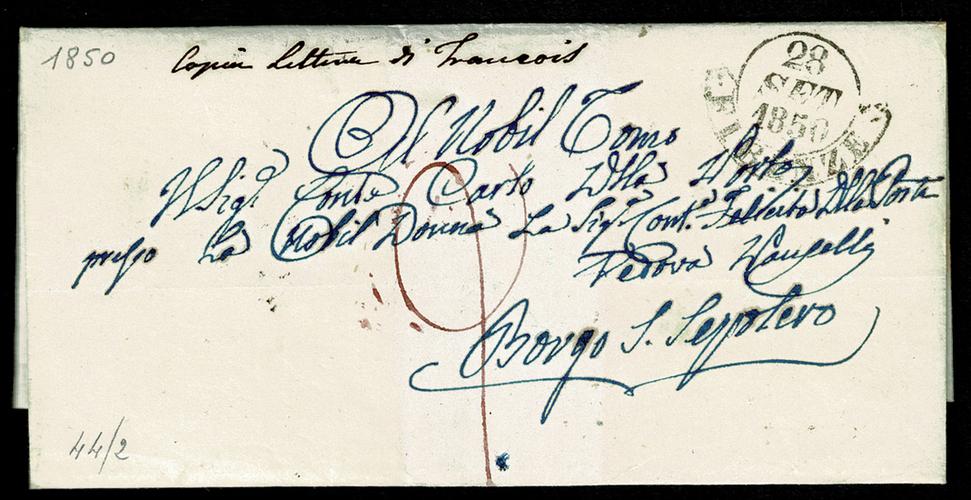 1850
Copia Lettera di Francois
28
SET
1850
FIRENZE
Al Nobil Uomo
Il Sig.r Conte Carlo Della Porta
presso La Nobil Donna La Sig.ra Cont.a Felicita Della Porta
Vedova
Borgo S. Sepolcro
44/2